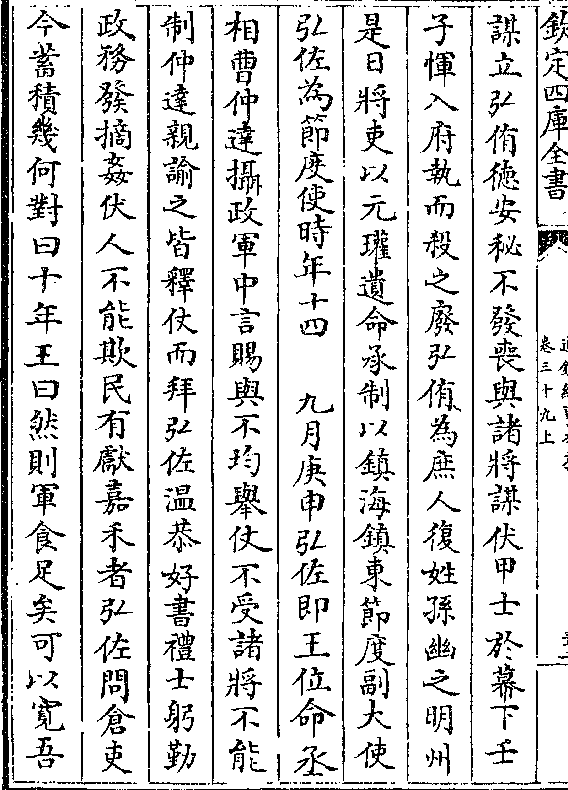 欽定四庫全書
卷三十九上
謀立弘侑德安秘不發喪與諸將謀伏甲士於幕下壬
子惲入府執而殺之廢弘侑為庶人復姓孫幽之明州
是日將吏以元瓘遺命承制以鎮海鎮東節度副大使
弘佐為節度使時年十四 九月庚申弘佐即王位命丞
相曹仲達攝政軍中言賜與不均舉仗不受諸將不能
制仲達親諭之皆釋仗而拜弘佐温恭好書禮士躬勤
政務發摘姦伏人不能欺民有獻嘉禾者弘佐問倉吏
今蓄積幾何對曰十年王曰然則軍食足矣可以寛吾